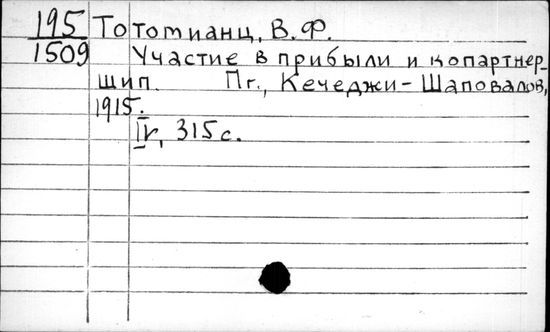 195 Тотомианц, В.Ф.
1509 Участие в прибыли и копартнер-
шип. Пг., Кечеджи-Шаповалов,
1915.
IV, 315с.